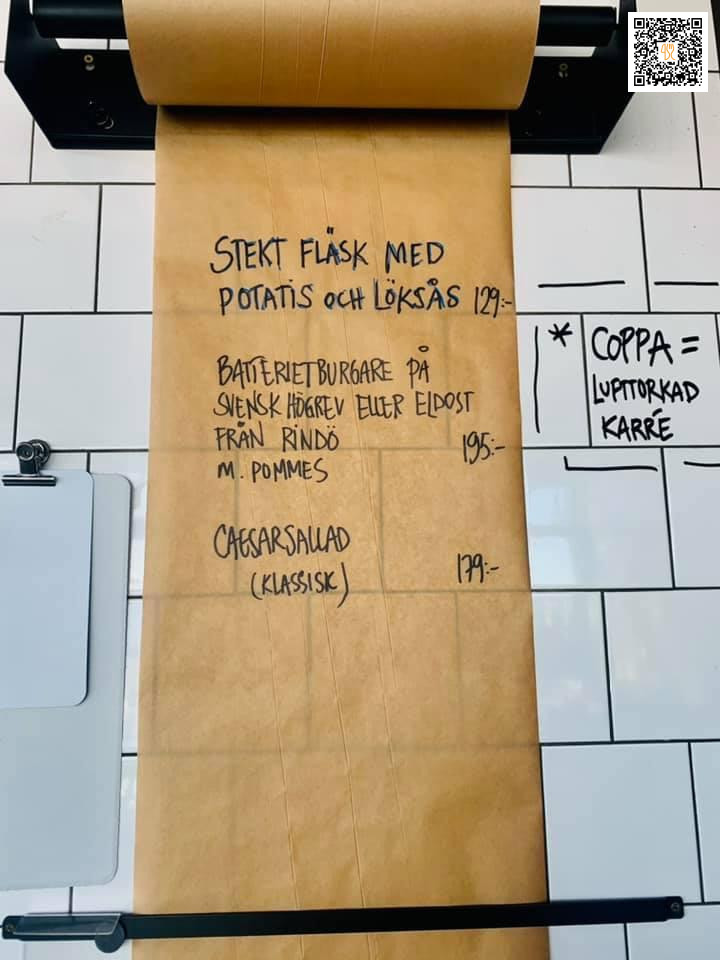 STEKT FLÄSK MED
POTATIS OCH LÖKSÅS 129:-
BATTERIETBURGARE PÅ
SVENSK HÖGREV ELLER ELDOST
FRÅN RINDÖ 195:-
M. POMMES
CAESARSALLAD
(KLASSISK) 179:-
* COPPA =
LUFTTORKAD
KARRÉ